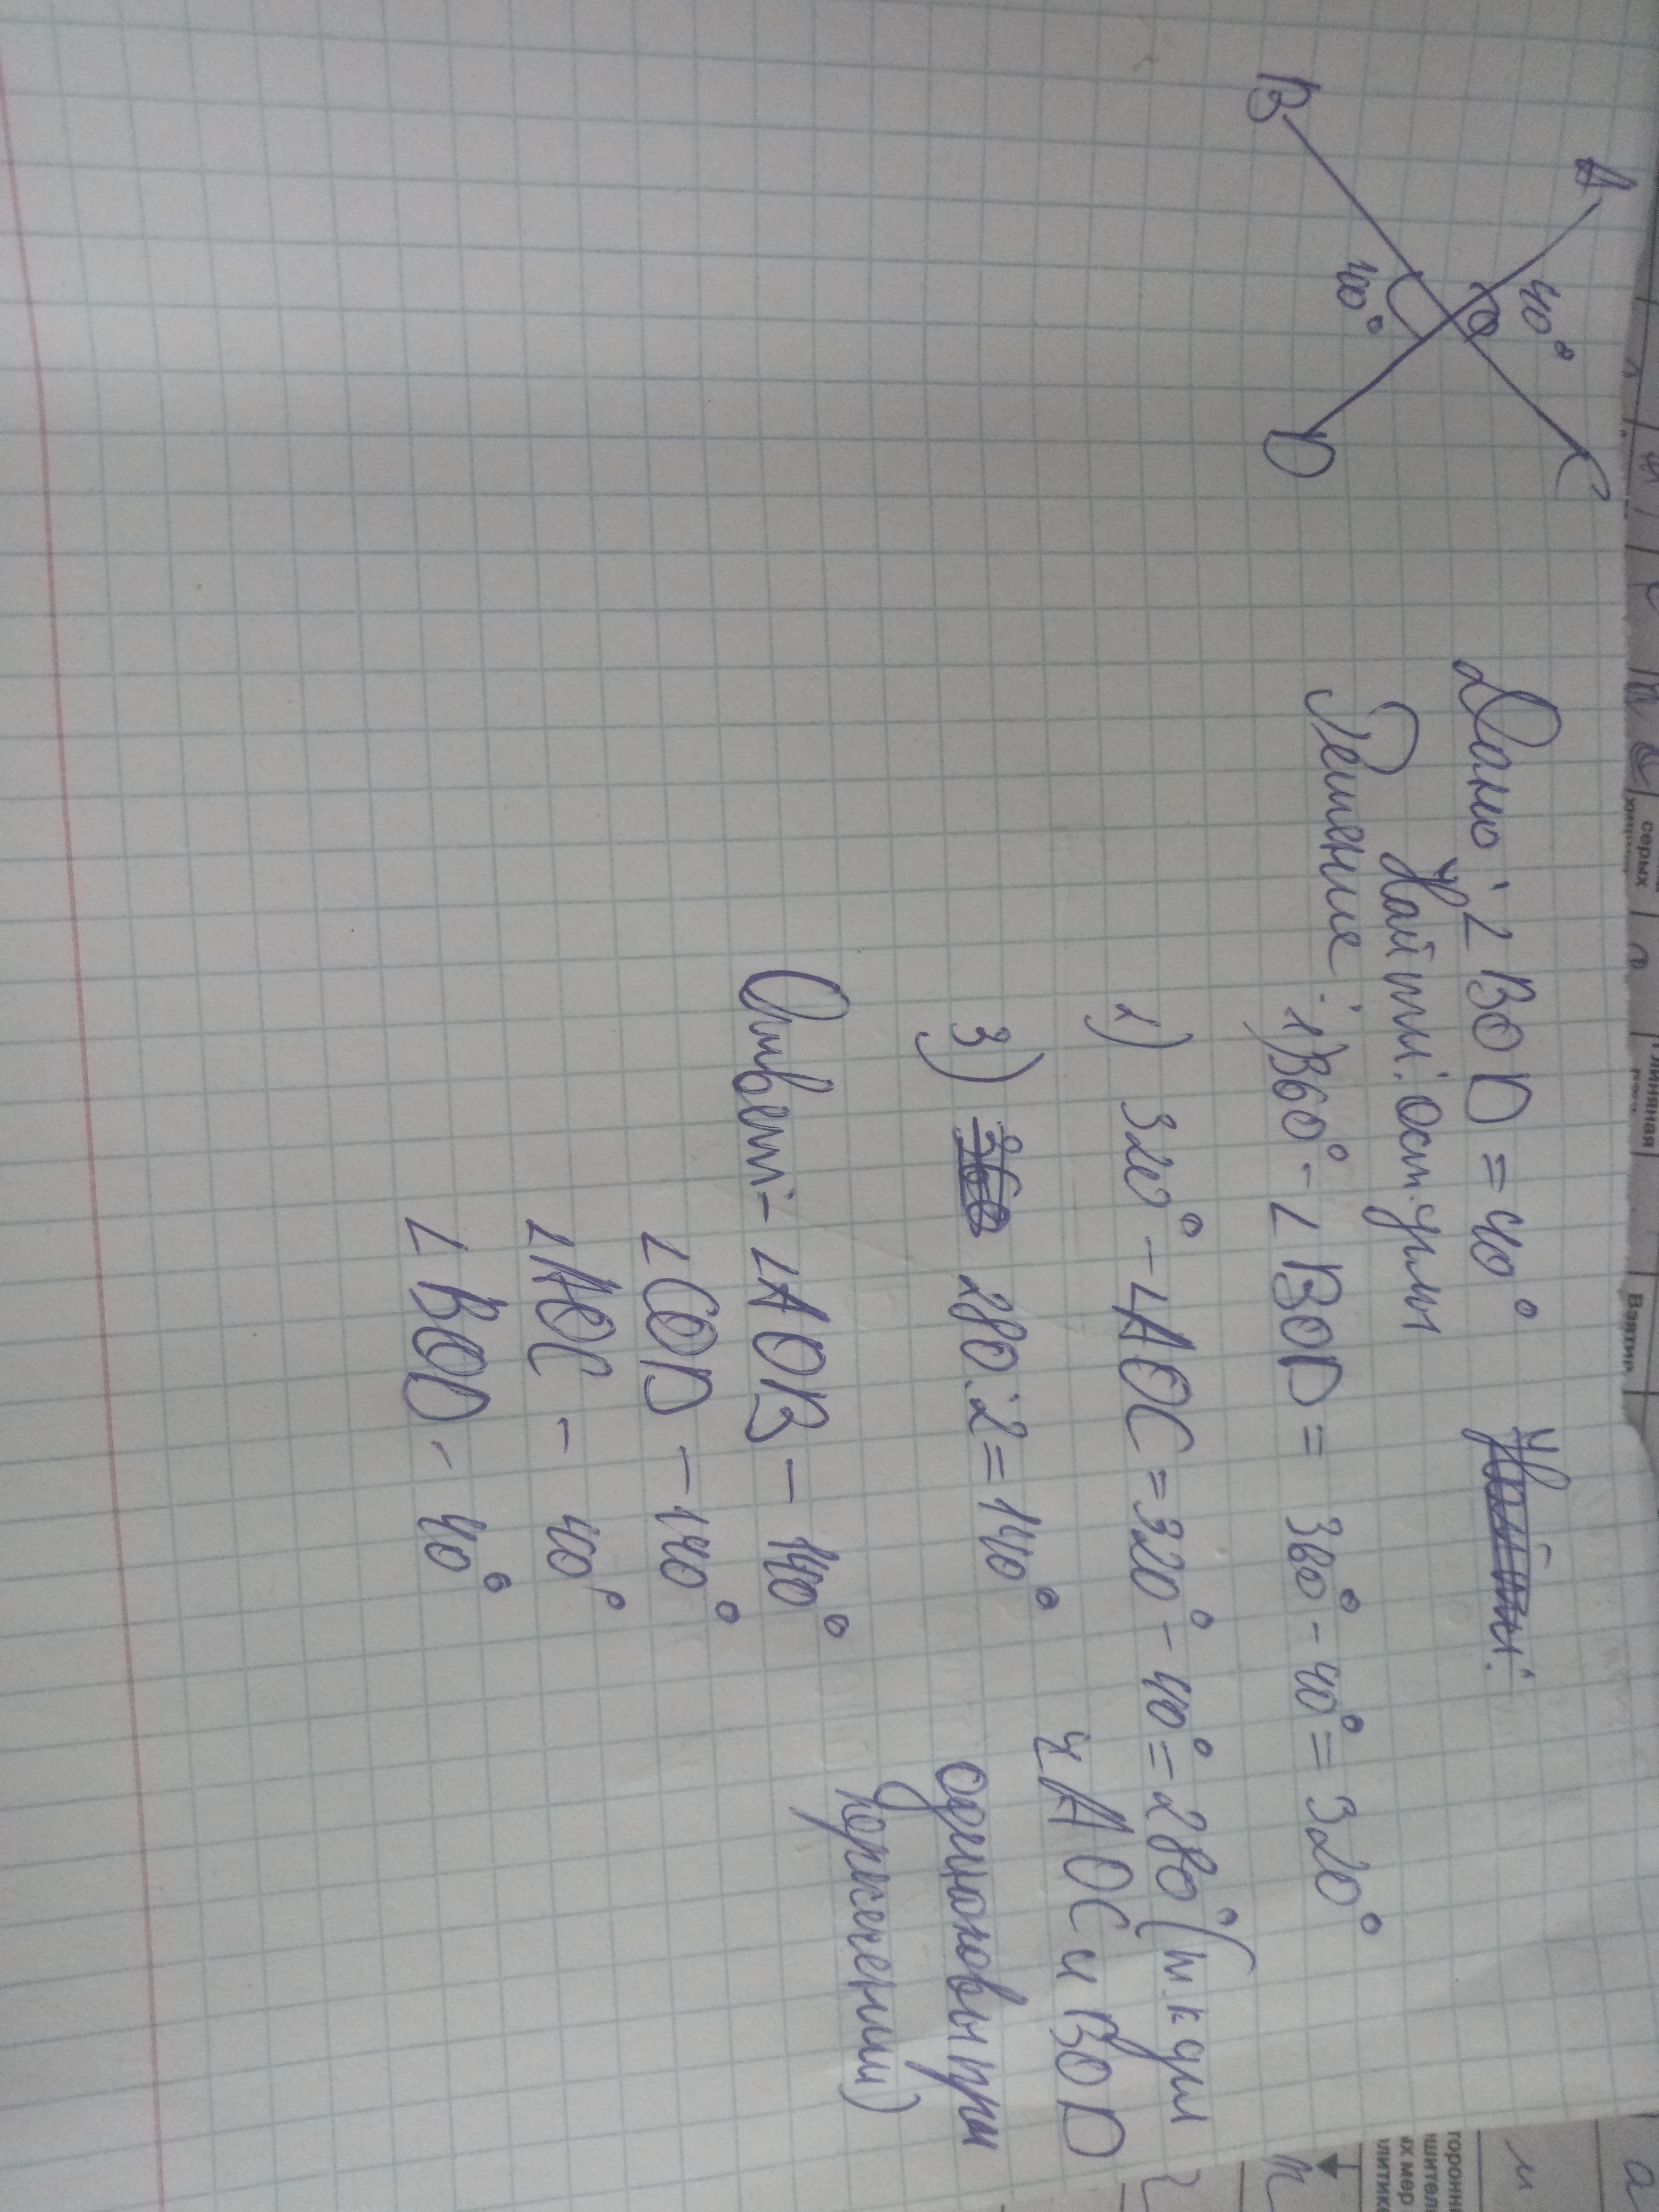 A
C
40°
O
40°
B
D
Дано: ∠BOD = 40°
Найти: ост. углы
Решение: 1) 360° - ∠BOD = 360° - 40° = 320°
2) 320° - ∠AOC = 320° - 40° = 280° (т.к угл
∠AOC и BOD
одинаковы при
пересечении)
3) 280:2 = 140°
Ответ:- ∠AOB - 140°
∠COD - 140°
∠AOC - 40°
∠BOD - 40°
серых
Глиняная
Взятие